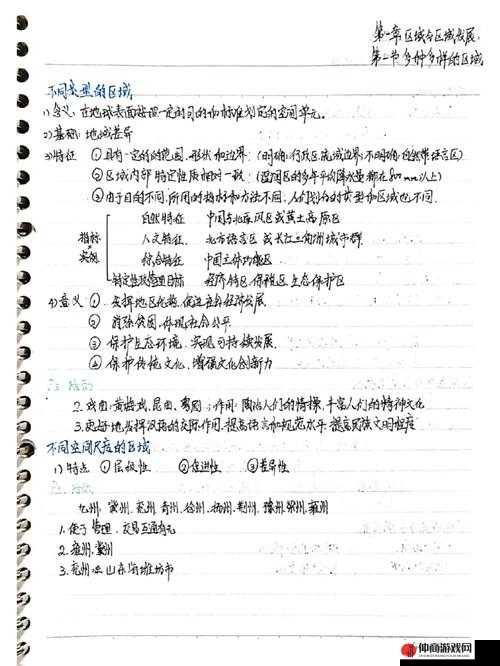 第一章 区域与区域发展
第一节 多种多样的区域
不同类型的区域
1) 含义: 在地球表面按照一定的目的和标准划定的空间单元。
2) 基础: 地域差异
3) 特征 ①具有一定的范围、形状和边界: (明确: 行政区、流域边界; 不明确: 自然带、语言区)
②区域内部特定性质相对一致: (湿润区的多年平均降水量都在800mm以上)
③由于目的不同, 所用的指标和方法不同, 人们划分的类型和区域也不同.
指标 实例
自然特征 中国东北季风区或黄土高原区
人文特征 北方语言区或长江三角洲城市群
综合特征 中国主体功能区
特定性或管理目标 经济特区、保税区、生态保护区
4) 意义 ① 发挥地区优势, 促进社会经济发展.
② 消除贫困, 体现社会公平
③ 保护生态环境, 实现可持续发展.
④ 保护传统文化, 增强文化创新力
2. 戏曲: 黄梅戏、昆曲、粤剧; 作用: 陶冶人们的情操, 丰富人们的精神文化
3. 更好地发挥汉语的交际作用, 提高语言和规范水平 提高民族文明程度
不同空间尺度的区域
1) 特点 ①层级性 ② 性 ③差异性
九州: 冀州、兖州、青州、徐州、扬州、荆州、豫州、梁州、雍州
1. 便于管理、交易互通有无
2. 雍州、冀州
3. 兖州 山东省潍坊市
仲商游戏网